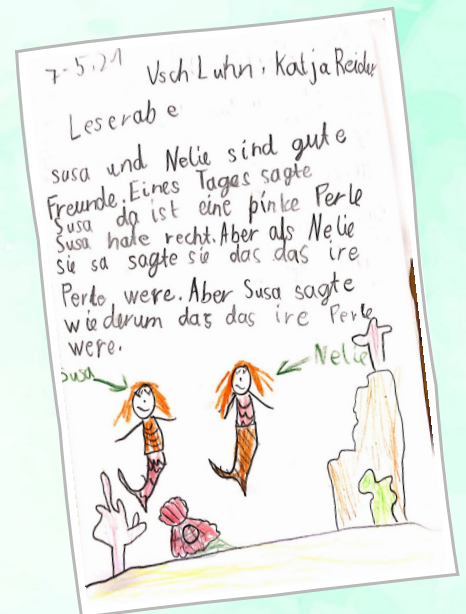 7-5.21 Usch Luhn, Katja Reider
Leserabe
susa und Nelie sind gute
Freunde. Eines Tages sagte
Susa da ist eine pinke Perle
Susa hate recht. Aber als Nelie
sie sa sagte sie das das ire
Perle were. Aber Susa sagte
wiederum das das ire Perle
were.
Susa
Nelie